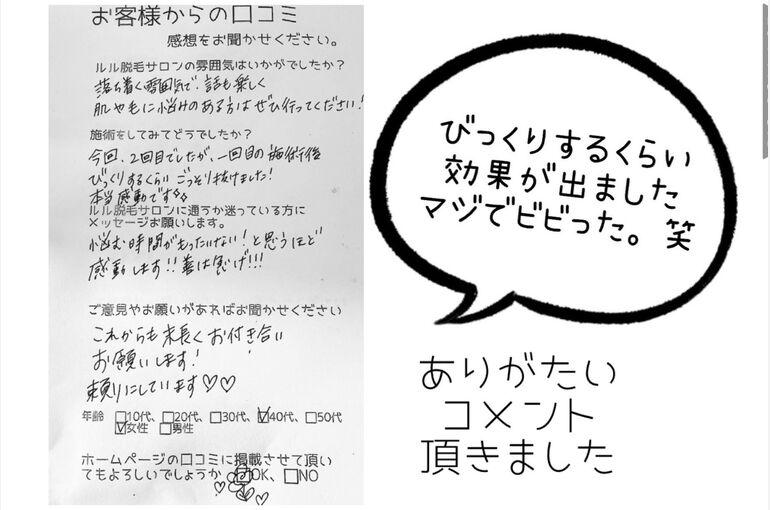 お客様からの口コミ
感想をお聞かせください。
ルル脱毛サロンの雰囲気はいかがでしたか？
落ち着く雰囲気で、話も楽しく
肌や毛に悩みのある方はぜひ行ってください！
施術をしてみてどうでしたか？
今回、2回目でしたが、一回目の施術後
びっくりするくらいごっそり抜けました！
本当感動です
ルル脱毛サロンに通うか迷っている方に
メッセージお願いします。
悩む時間がもったいない！と思うほど
感動します!!善は急げ!!!
ご意見やお願いがあればお聞かせください
これからも末長くお付き合い
お願いします！
頼りにしています♡♡
年齢 □10代、□20代、□30代、☑40代、□50代
☑女性 □男性
ホームページの口コミに掲載させて頂い
てもよろしいでしょうか ☑OK、□NO
びっくりするくらい
効果が出ました
マジでビビった。笑
ありがたい
コメント
頂きました